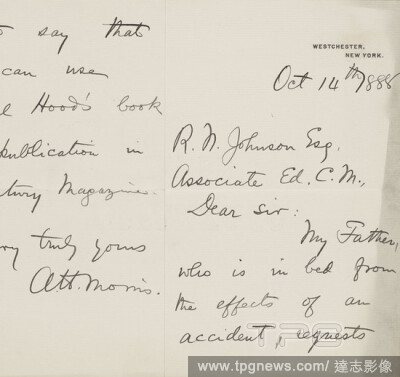 WESTCHESTER,
NEW YORK.
Oct 14th/1888
R. N. Johnson Esq.
Associate Ed. C. M.,
Dear Sir:
My Father,
who is in bed from
the effects of an
accident, requests
say that
can use
Hood's book
publication in
tury Magazine.
ry truly yours
A.H. Morris.
TPG
www.tpgnews.com / 達志影像